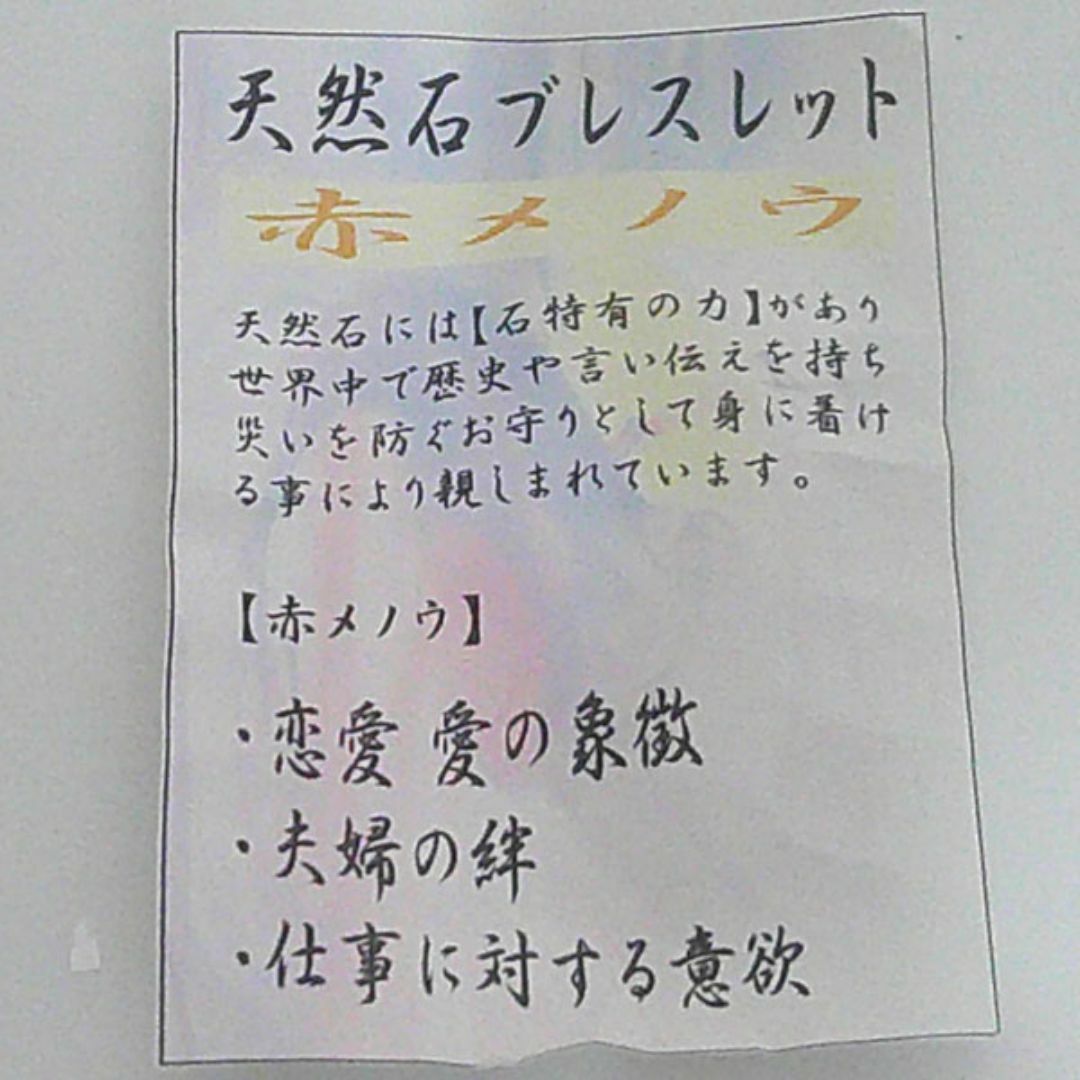 天然石ブレスレット
赤メノウ
天然石には【石特有の力】があり
世界中で歴史や言い伝えを持ち
災いを防ぐお守りとして身に着け
る事により親しまれています。
【赤メノウ】
・恋愛 愛の象徴
・夫婦の絆
・仕事に対する意欲